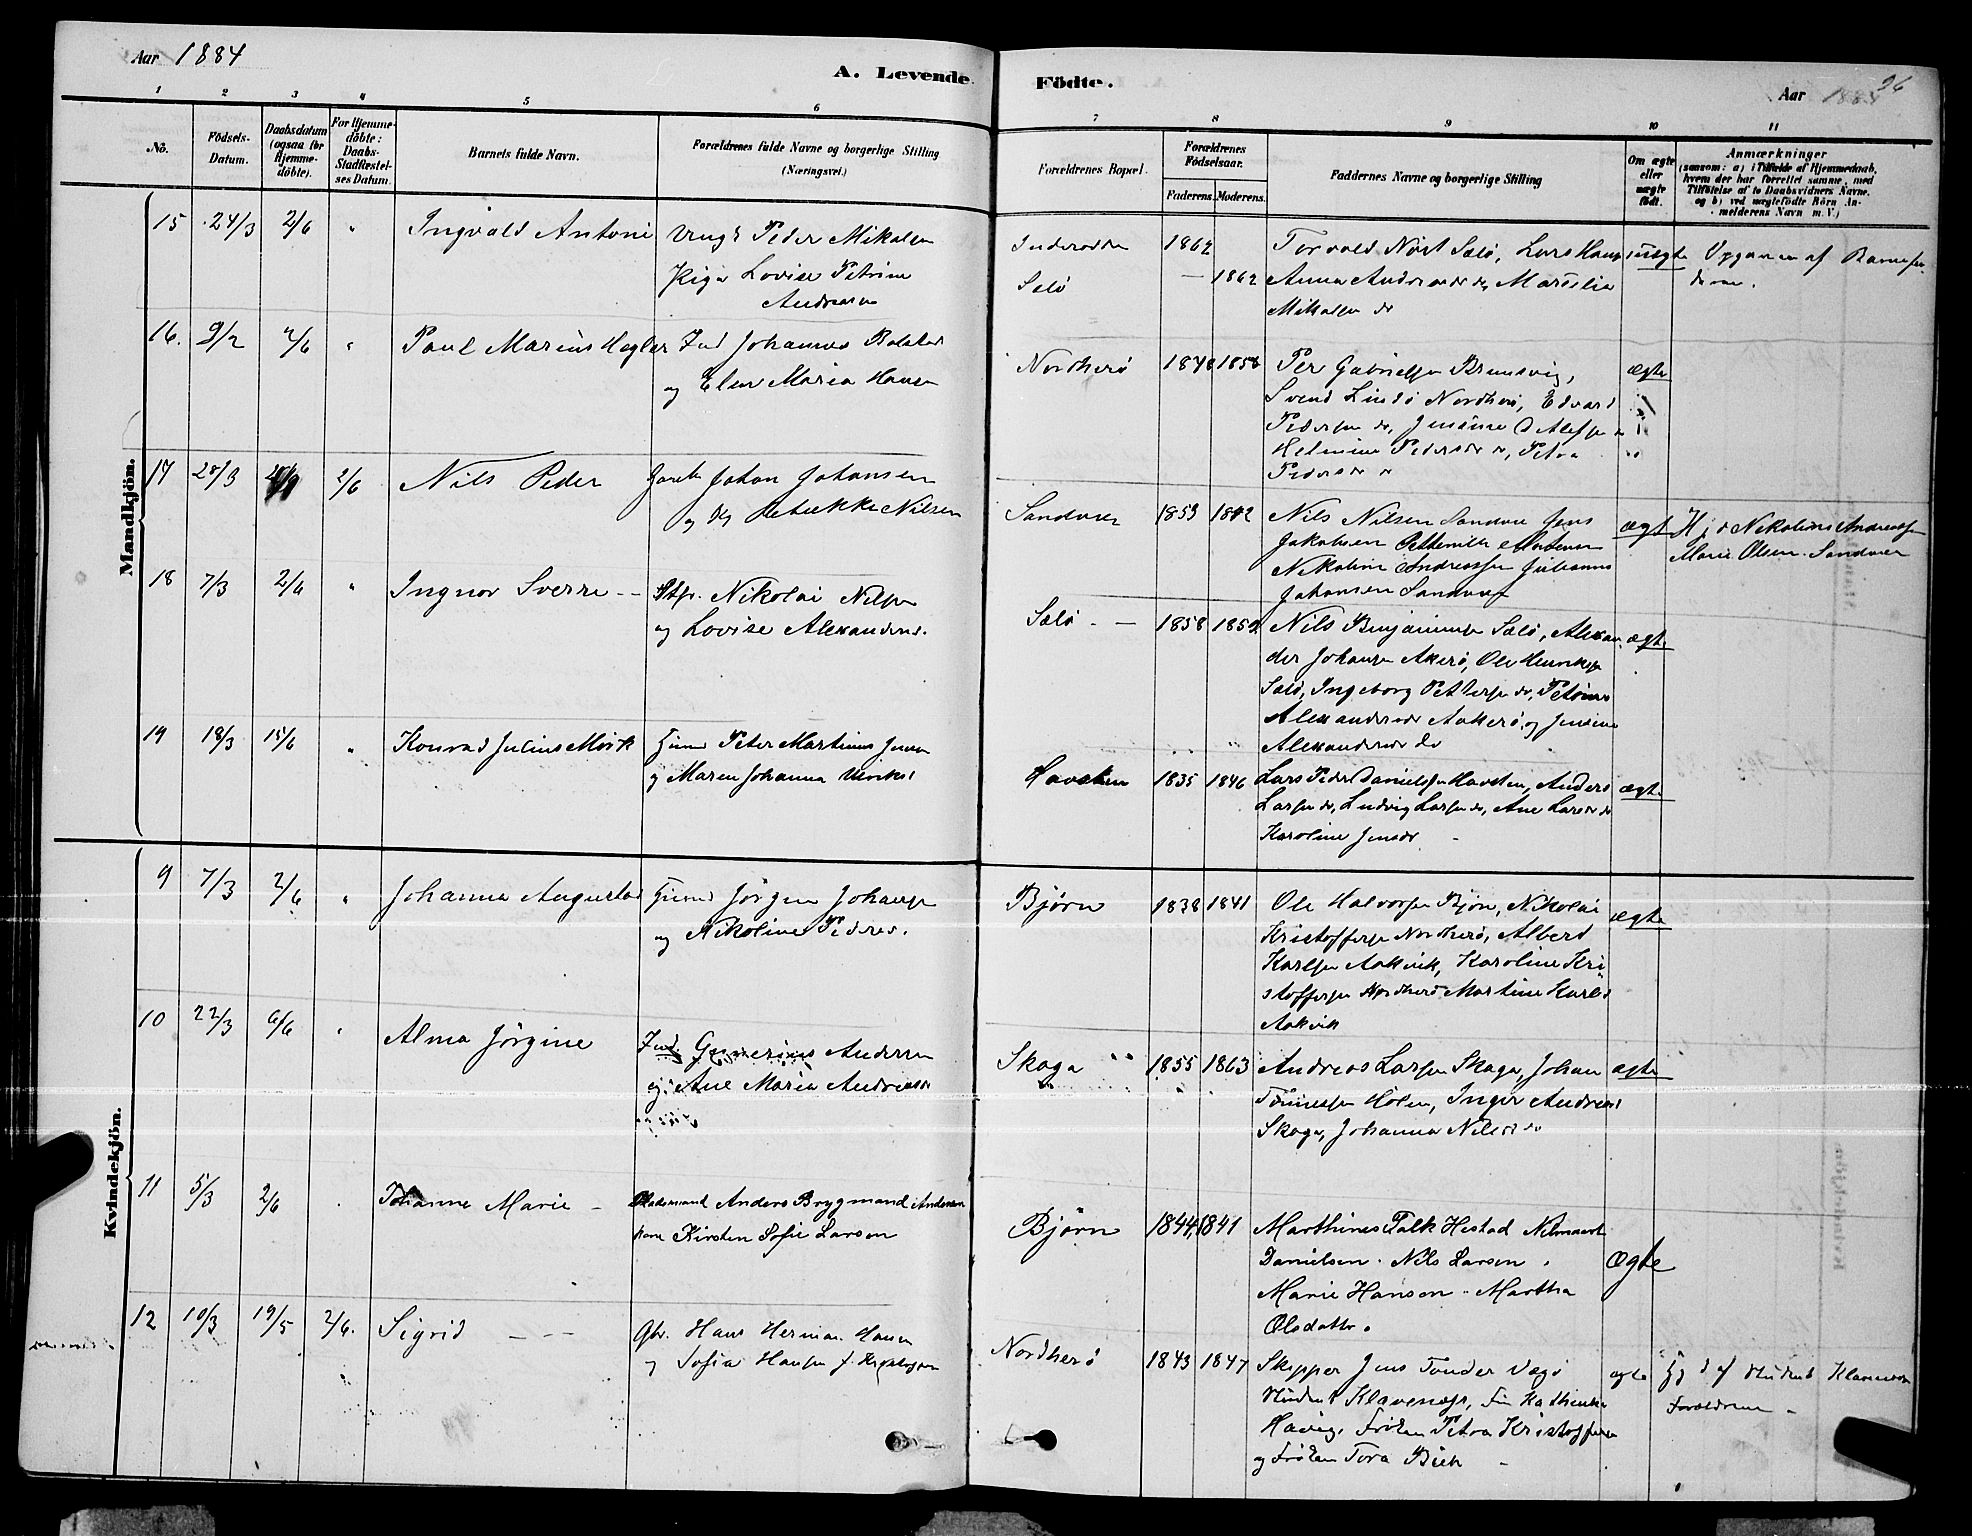 Aar 1884
A. Levende Födte.
Aar 1884
96
1 2 3 4 5 6 7 8 9 10 11
No.
Födsels-Datum.
Daabsdatum (ogsaa for Hjemme-döbte).
For Hjemme-döbte: Daabs-Stadfæstel-ses Datum.
Barnets fulde Navn.
Forældrenes fulde Navne og borgerlige Stilling (Næringsvei.)
Forældrenes Bopæl.
Forældrenes Födselsaar.
Faderens. Moderens.
Faddernes Navne og borgerlige Stilling
Om ægte eller uægte födt.
Anmærkninger
(saasom: a) i Tilfælde af Hjemmedaab, hvem der har forrettet samme, med Tilföielse af to Daabsvidners Navne, og b) ved uægtefödte Börn An-melderens Navn m. V.)
Mandkjön.
15 24/3 2/6 " Ingvald Antoni
Ungk Peder Mikalsen
Pige Lovise Petrine
Andreasen
Sølø
1862
1862
Torvald Nöst Sølø, Lars Hans
Anna Andreasdr do, Marselia
Mikalsen do
uægte
Opgaven af Barnefa-
deren.
16. 9/2 2/6 " Paul Marius Hegler
Ind Johannes Bolstad
og Elen Maria Hansen
Nordherö
1848 1858
Per Gabrielsen Brunsvig,
Svend Lindö Nordherö, Edvard
Pedersen do, Jensine
Helmine Pedersdr ", Petra
Pedersdr "
ægte
17 28/3 2/6 Nils Peder
Johan Johansen
og Rebekka Nilsen
Sandvær
1853 1842
Nils Nilsen Sandvær Jens
Jakobsen Pethernille Mortensen
Nikoline Andreassen Julianne
Johansen Sandvær
ægte
Hj. d Nikoline Andreassen
Marie Olsen Sandvær
18 7/3 2/6 " Ingvor Sverre --
Nikolai Nilsen
og Lovise Alexandersd.
Sølø - -
1858 1859
Nils Benjaminsen Sølø, Alexan
der Johansen Akerö, Ole Henriksen
Sølø, Ingeborg Pettersen do, Petrine
Alexandersdr Aakerö, og Jensine
Alexandersdr do
ægte
19 18/3 15/6 " Konrad Julius Mörk
Peter Martinus Jensen
og Maren Johanna Ulriksd
Havsten
1835 1846
Lars Peder Danielsen Havsten, Anders
Larsen do, Ludvig Larsen do, Ane Larsdr do
Karoline Jensdr -
ægte
Kvindekjön.
9 7/3 2/6 " Johanna Augusta
Jörgen Johansen
og Nikoline Pedersd.
Björn
1838 1841
Ole Halvorsen Björn, Nikolai
Kristoffersen Nordherö, Albert
Karlsen Aakvik, Karoline Kri
stoffersen Nordherö Martine Karlsd
Aakvik
ægte
10 22/3 6/6 " Alma Jörgine
Ind. Gunerius Andersen
og Ane Maria Andreasdr
Skaga "
1855 1863
Andreas Larsen Skaga, Johan
Tönnessen Holen, Inger Andreasd
Skaga, Johanna Nilsdr do
ægte
11 5/3 2/6 . Johanne Marie -
Pladsmand Anders Brygmand Andersen
kone Kirsten Sofie Larsen
Björn
1844 1841
Marthines Falk Hestad
Danielsen. Nils Larsen.
Marie Hansen. Martha
Olsdatter.
Ægte
12 10/3 19/5 2/6. Sigrid - - -
Gbr. Hans Herman Hansen
og Sofia Hansen f. Kristensen
Nordherö
1843 1847
Skipper Jens Tonder Vægö
Student Klavenæss, Frk Kathinka
Having, Fröken Petra Kristoffersen
og Fröken Tora Bech -
ægte
Hj d af Student Klavenæs
Forældrene -